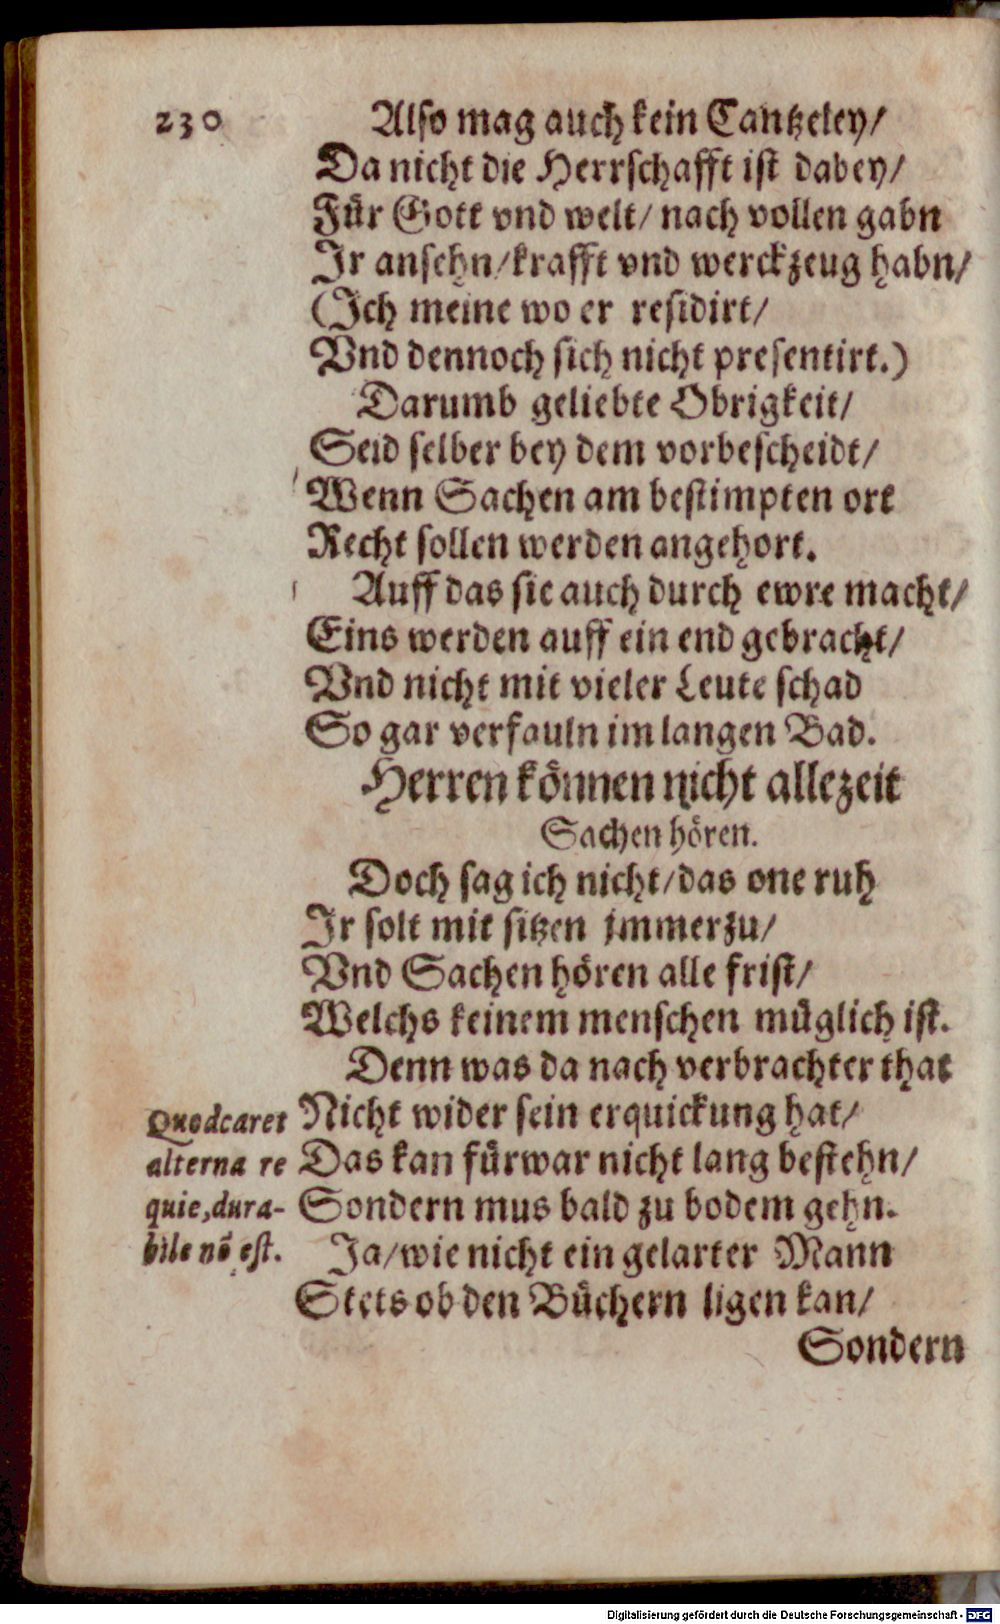 230
Also mag auch kein Cantzeley/
Da nicht die Herrschafft ist dabey/
Für Gott vnd welt/ nach vollen gabn
Ir ansehn/krafft vnd werckzeug habn/
(Ich meine wo er residirt/
Vnd dennoch sich nicht presentirt.)
Darumb geliebte Obrigkeit/
Seid selber bey dem vorbescheidt/
Wenn Sachen am bestimpten ort
Recht sollen werden angehort.
Auff das sie auch durch ewre macht/
Eins werden auff ein end gebracht/
Vnd nicht mit vieler Leute schad
So gar verfauln im langen Bad.
Herren können nicht allezeit
Sachen hören.
Doch sag ich nicht/das one ruh
Ir solt mit sitzen jmmerzu/
Vnd Sachen hören alle frist/
Welchs keinem menschen müglich ist.
Denn was da nach verbrachter that
Nicht wider sein erquickung hat/
Das kan fürwar nicht lang bestehn/
Sondern mus bald zu bodem gehn.
Ja/wie nicht ein gelarter Mann
Stets ob den Büchern ligen kan/
Sondern
Quod caret
alterna re
quie,dura-
bile nō est.
Digitalisierung gefördert durch die Deutsche Forschungsgemeinschaft - DFG